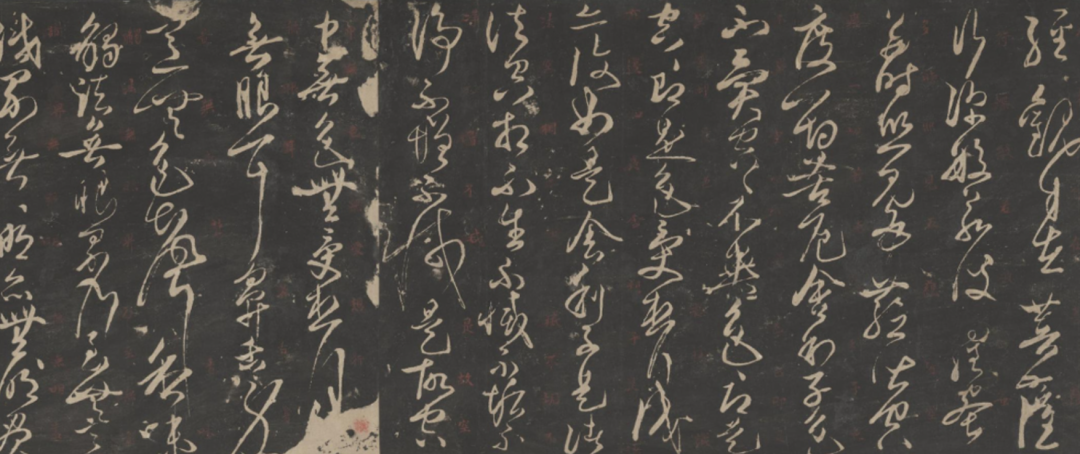 經觀自在菩薩
行深般若波羅蜜
多時照見五蘊皆空
度一切苦厄舍利子色
不異空空不異色色即是
空即是色受想行識
亦復如是舍利子是諸
法空相不生不滅不垢不
淨不增不減是故空
中無色無受想行
無眼耳鼻舌身
意無色聲香味
觸法無眼界乃至無意
識界無無明亦無無明盡